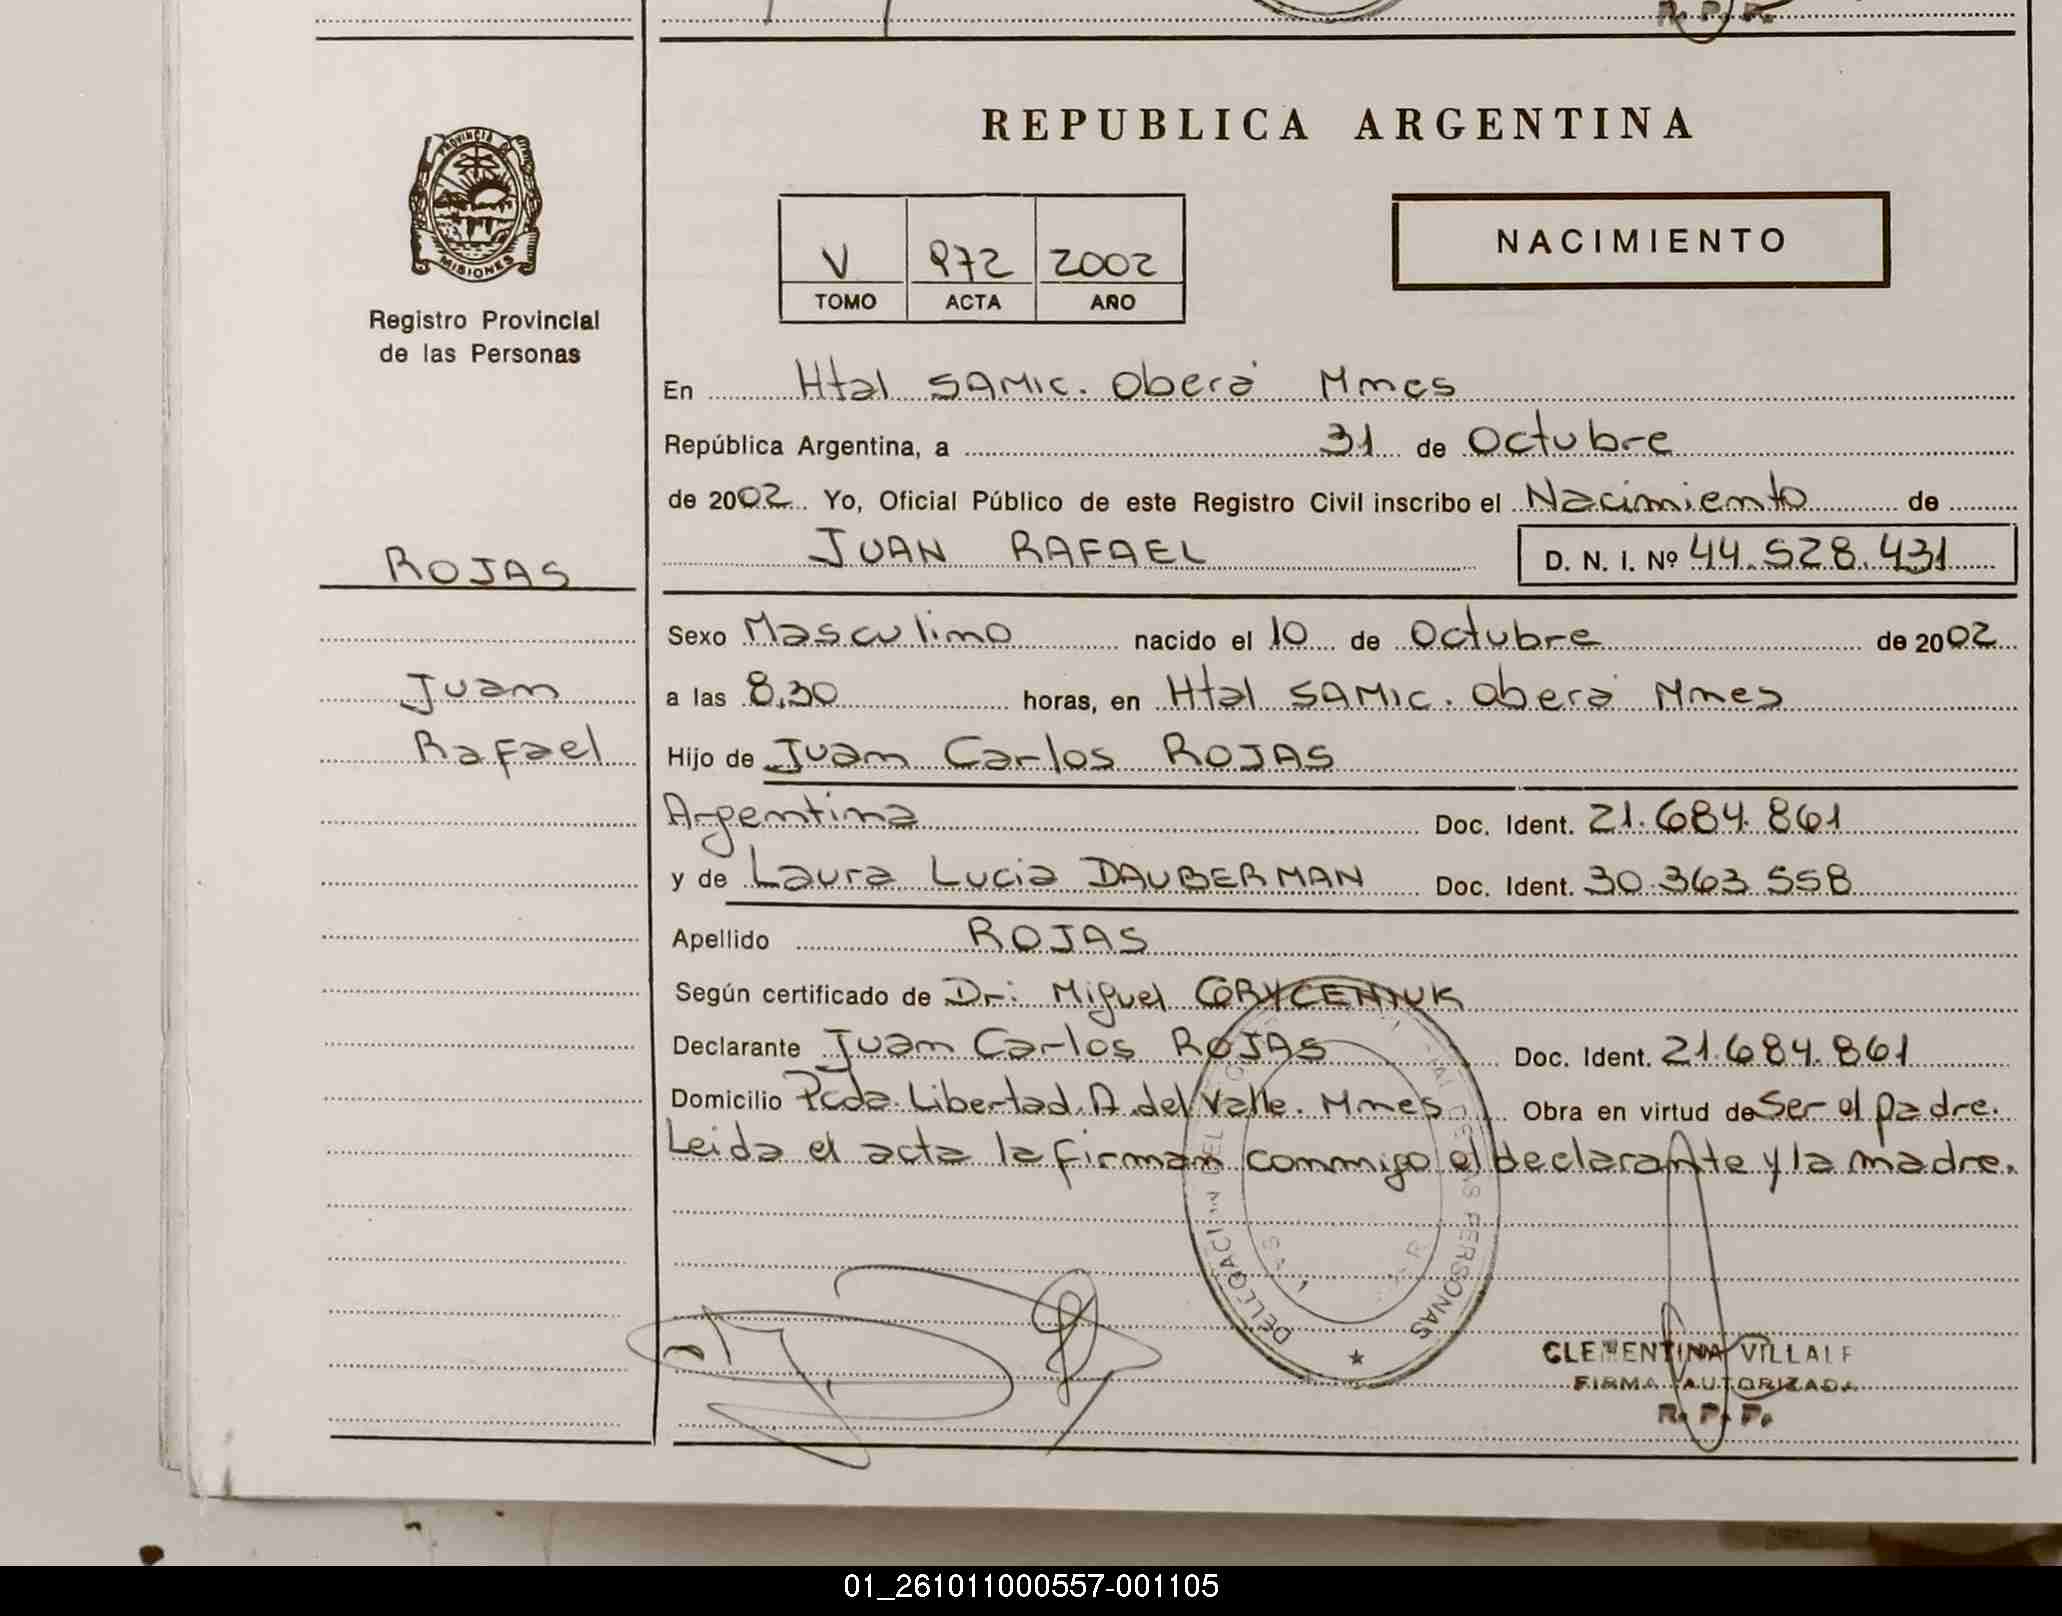 R. P. P.
REPUBLICA ARGENTINA
PROVINCIA DE
MISIONES
Registro Provincial
de las Personas
V 972 2002
TOMO ACTA AÑO
NACIMIENTO
En Htal SAMIC. Oberá Mnes
República Argentina, a 31 de Octubre
de 2002 Yo, Oficial Público de este Registro Civil inscribo el Nacimiento de
JUAN RAFAEL D. N. I. Nº 44.528.431
ROJAS
Juan
Rafael
Sexo Masculino nacido el 10 de Octubre de 2002
a las 8,30 horas, en Htal SAMIC. Oberá Mnes
Hijo de Juan Carlos ROJAS
Argentina Doc. Ident. 21.684.861
y de Laura Lucia DAUBERMAN Doc. Ident. 30.363.558
Apellido ROJAS
Según certificado de Dr: Miguel GRYCENIUK
Declarante Juan Carlos ROJAS Doc. Ident. 21.684.861
Domicilio Pcda. Libertad. A. del Valle. Mnes Obra en virtud de Ser el padre.
Leida el acta la firman conmigo el declarante y la madre.
PERSONAS
CLEMENTINA
FIRMA AUTORIZADA
R. P. P.
01_261011000557-001105